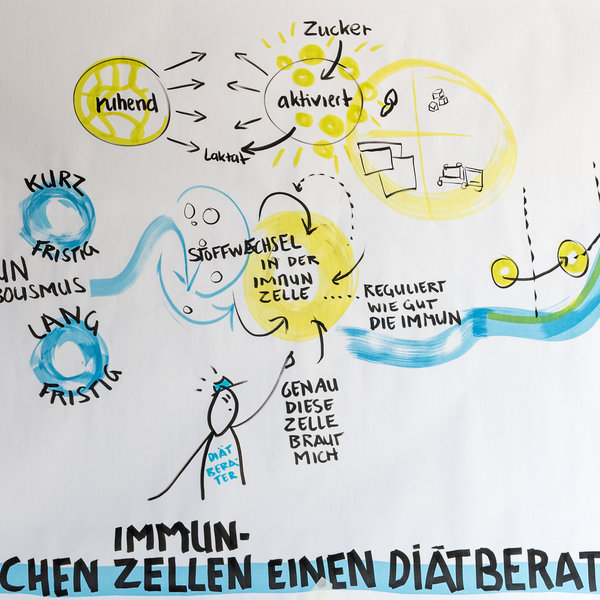 Zucker
ruhend
aktiviert
Laktat
KURZ
FRISTIG
UN
BOLISMUS
LANG
FRISTIG
STOFFWECHSEL
IN DER
IMMUN
ZELLE
REGULIERT
WIE GUT
DIE IMMUN
GENAU
DIESE
ZELLE
BRAUT
MICH
DIÄT
BERA-
TER
IMMUN-
CHEN ZELLEN EINEN DIÄTBERAT